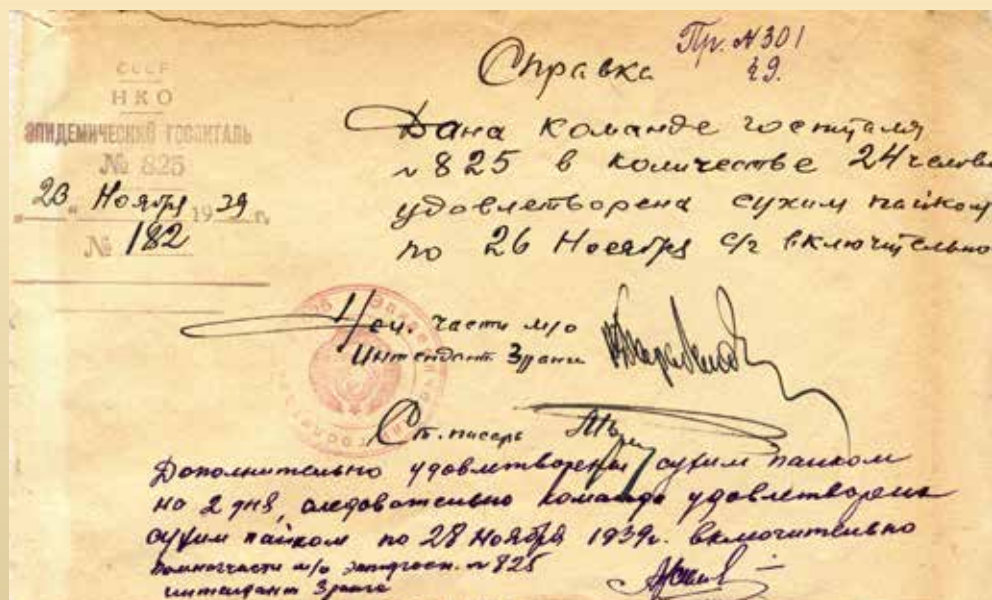 СССР
НКО
ЭПИДЕМИЧЕСКИЙ ГОСПИТАЛЬ
№ 825
"23" Ноября 1939 г.
№ 182
Пр. N 301
Справка
Дана команде госпиталя
N 825 в количестве 24 челове
удовлетворена сухим пайком
по 26 Ноября с/г включительно
Нач. части м/о
Интендант 3 ранга
Ст. писарь
Дополнительно удовлетворены сухим пайком
на 2 дня, следовательно команда удовлетворена
сухим пайком по 28 Ноября 1939г. включительно
м/о N 825
интендант 3 ранга